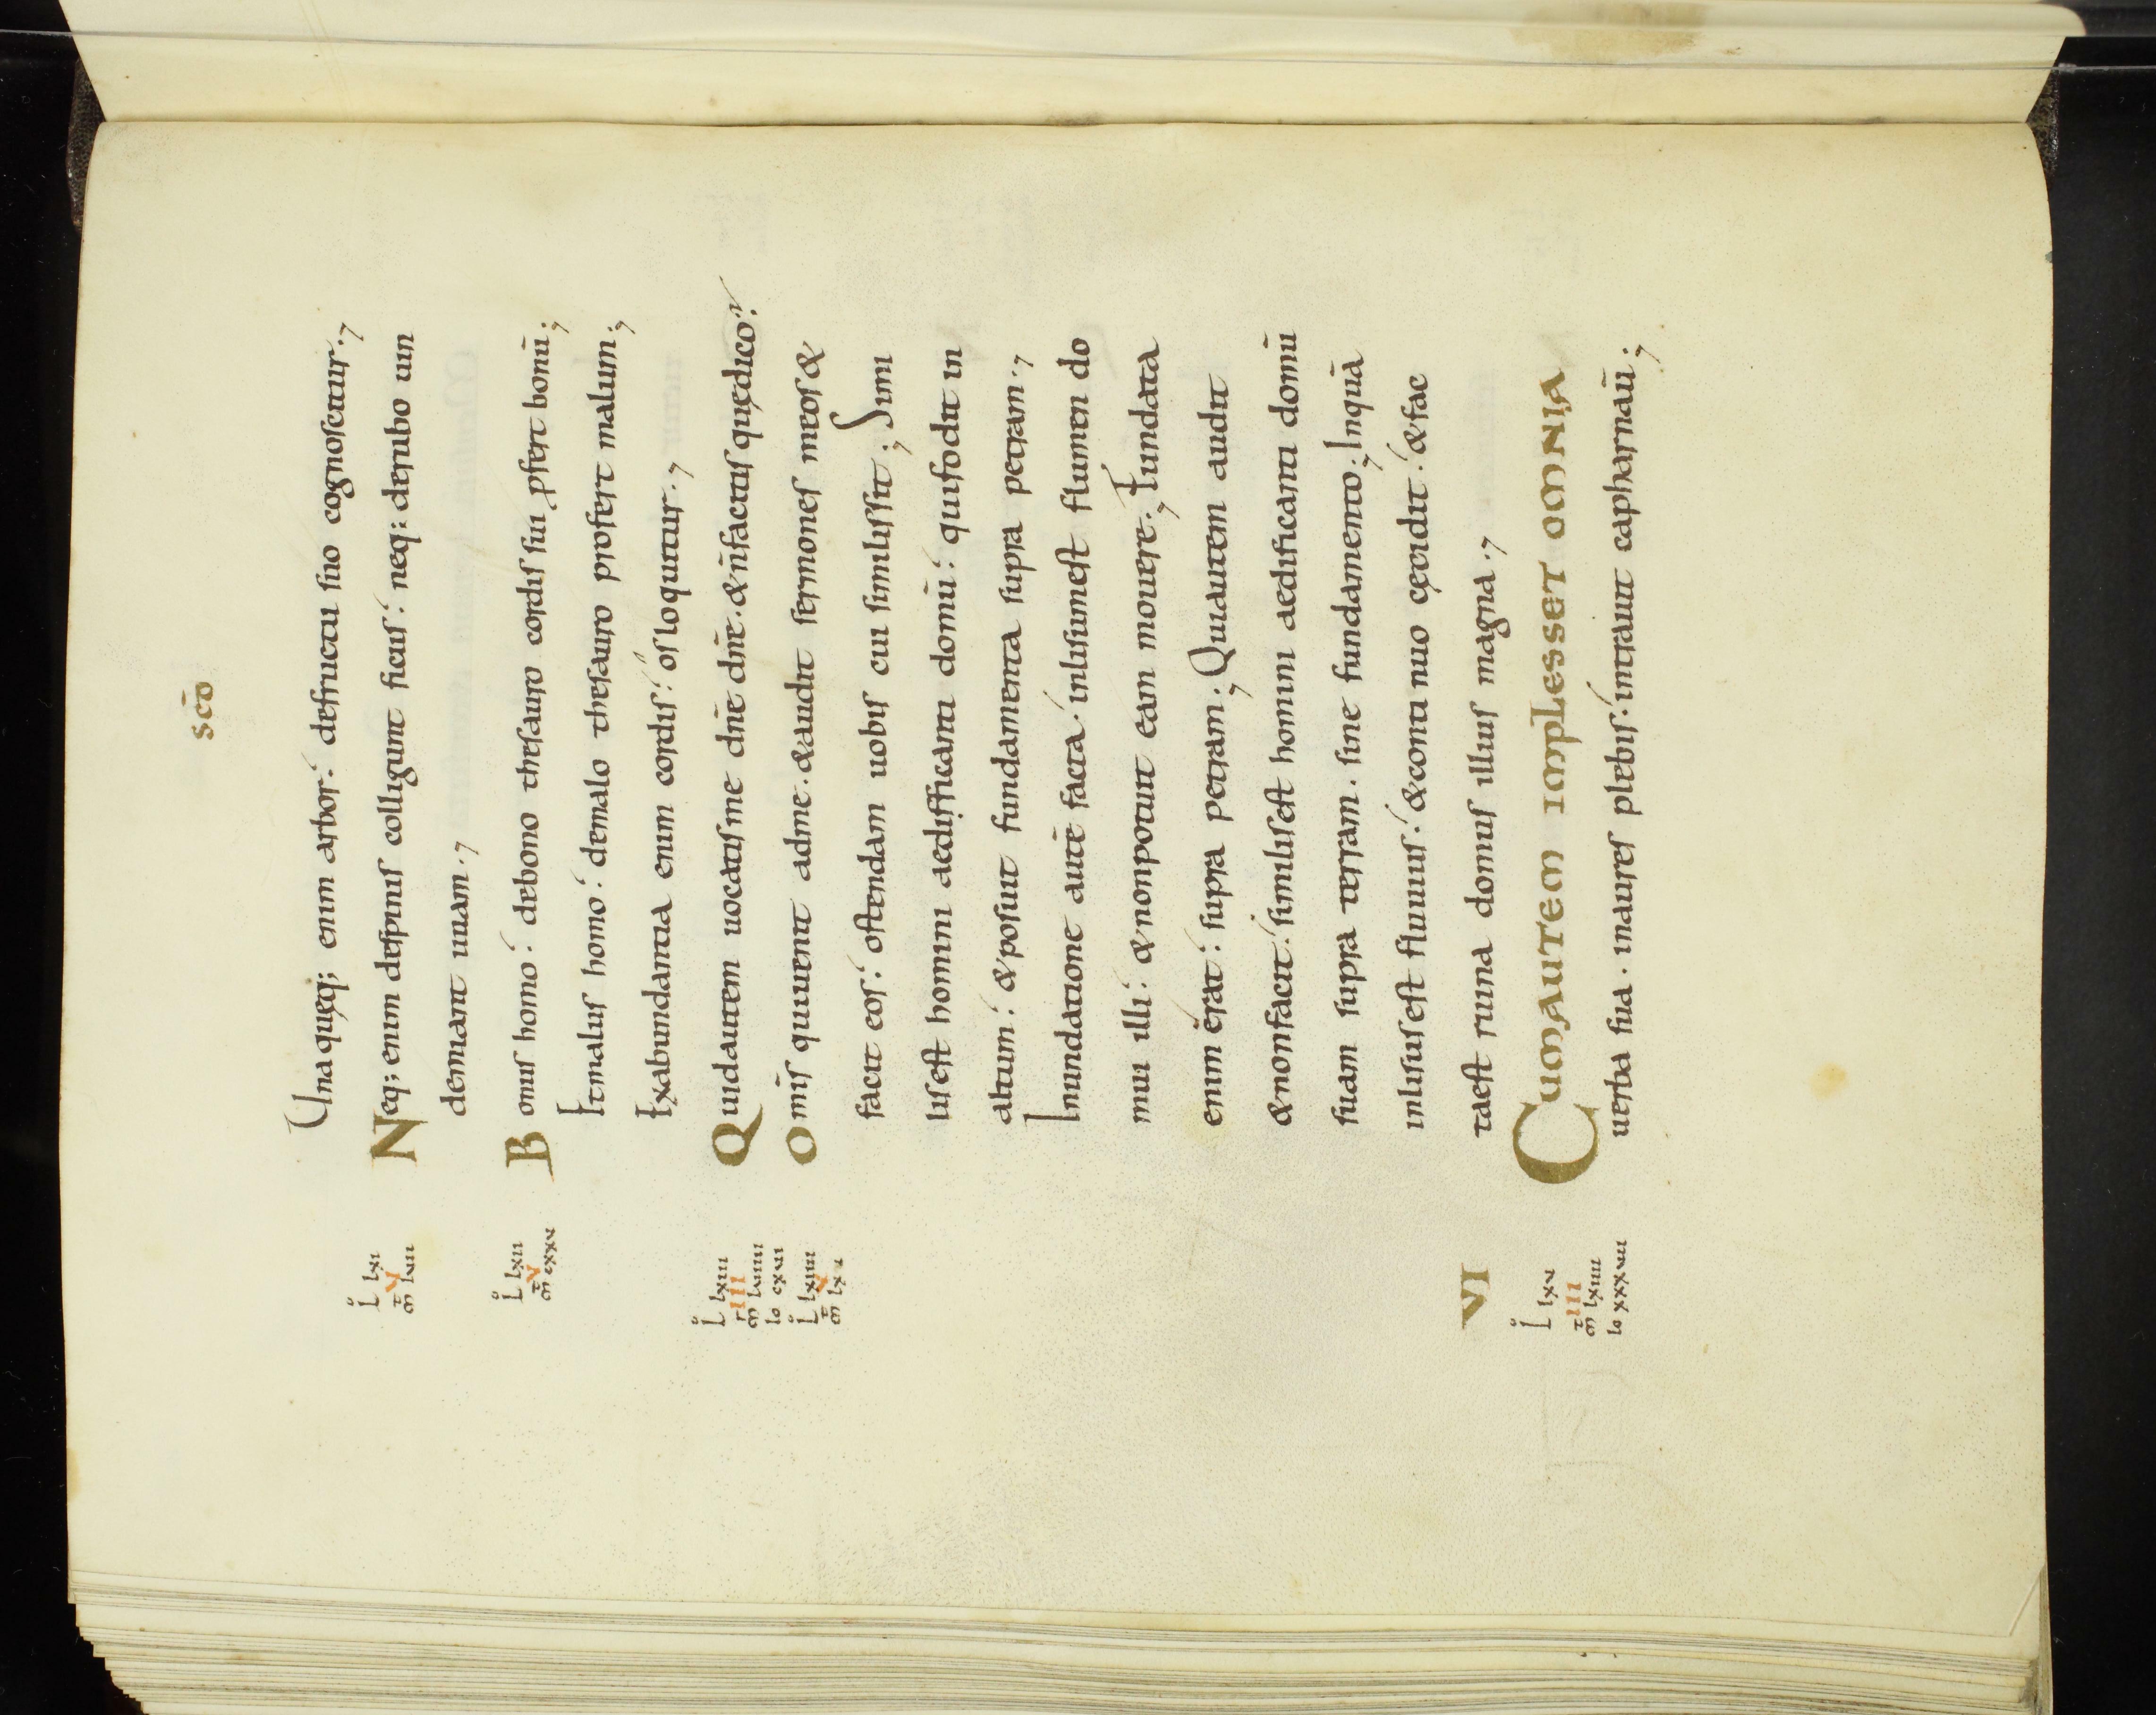 scd̄
Unaquęq; enim arbor: defructu suo cognoscetur.
L̊ lxi
V
m̄ lviii
Neq; enim despinis colligunt ficus: neq; derubo uin
demiant uuam.
L̊ lxii
V
m̄ cxxv
Bonus homo: debono thesauro cordis sui ꝓfert bonū;
Et malus homo: demalo thesauro profert malum;
Exabundantia enim cordis: os loquitur.
L̊ lxiii
III
m̄ lviiii
Io cxvii
Quidautem uocatisme dn̄e dn̄e. & n̄facitis quędico?
L̊ lxiiii
V
m̄ lxv
Omīs quiuenit adme. &audit sermones meos &
facit eos: ostendam uobis cui similissit; Simi
lisest homini aedifficanti domū: quifodit in
altum: &posuit fundamenta supra petram.
Inundatione autē facta. inlisumest flumen do
mui illi: & nonpotuit eam mouere. Fundata
enim erat: supra petram. Quiautem audit
&nonfacit: similisest homini aedificanti domū
suam supra terram. sine fundamento; Inquā
inlisusest fluuius: &conti nuo cęcidit: &fac
taest ruina domus illius magna.
VI
L̊ lxv
III
m̄ lxiiii
Io xxxviii
CUMAUTEM IMPLESSET OMNIA
uerba sua. inaures plebis: intrauit capharnaū;